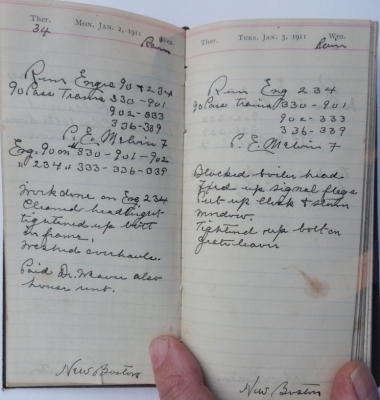 Ther. MON. JAN. 2, 1911 Wea.
34 Rain
Run Engs 90 & 234
90 Pass Trains 330-901
902-333
336-339
P. E. Melvin 7
Eng. 90 on 330-901-902
" 234 " 333-336-339
Work done on Eng 234
Cleaned headlight
tightened up bolt
in frame,
Needed overhaule.
Paid Dr. Weaver also
house rent.
New Boston
Ther. TUES. JAN. 3, 1911 Wea.
Rain
Run Eng 234
90 Pass Trains 330-901
902-333
336-339
P. E. Melvin 7
Blacked boiler head
Fixed up signal flags
Put up clock &
window.
Tightened up bolt on
lever
New Boston